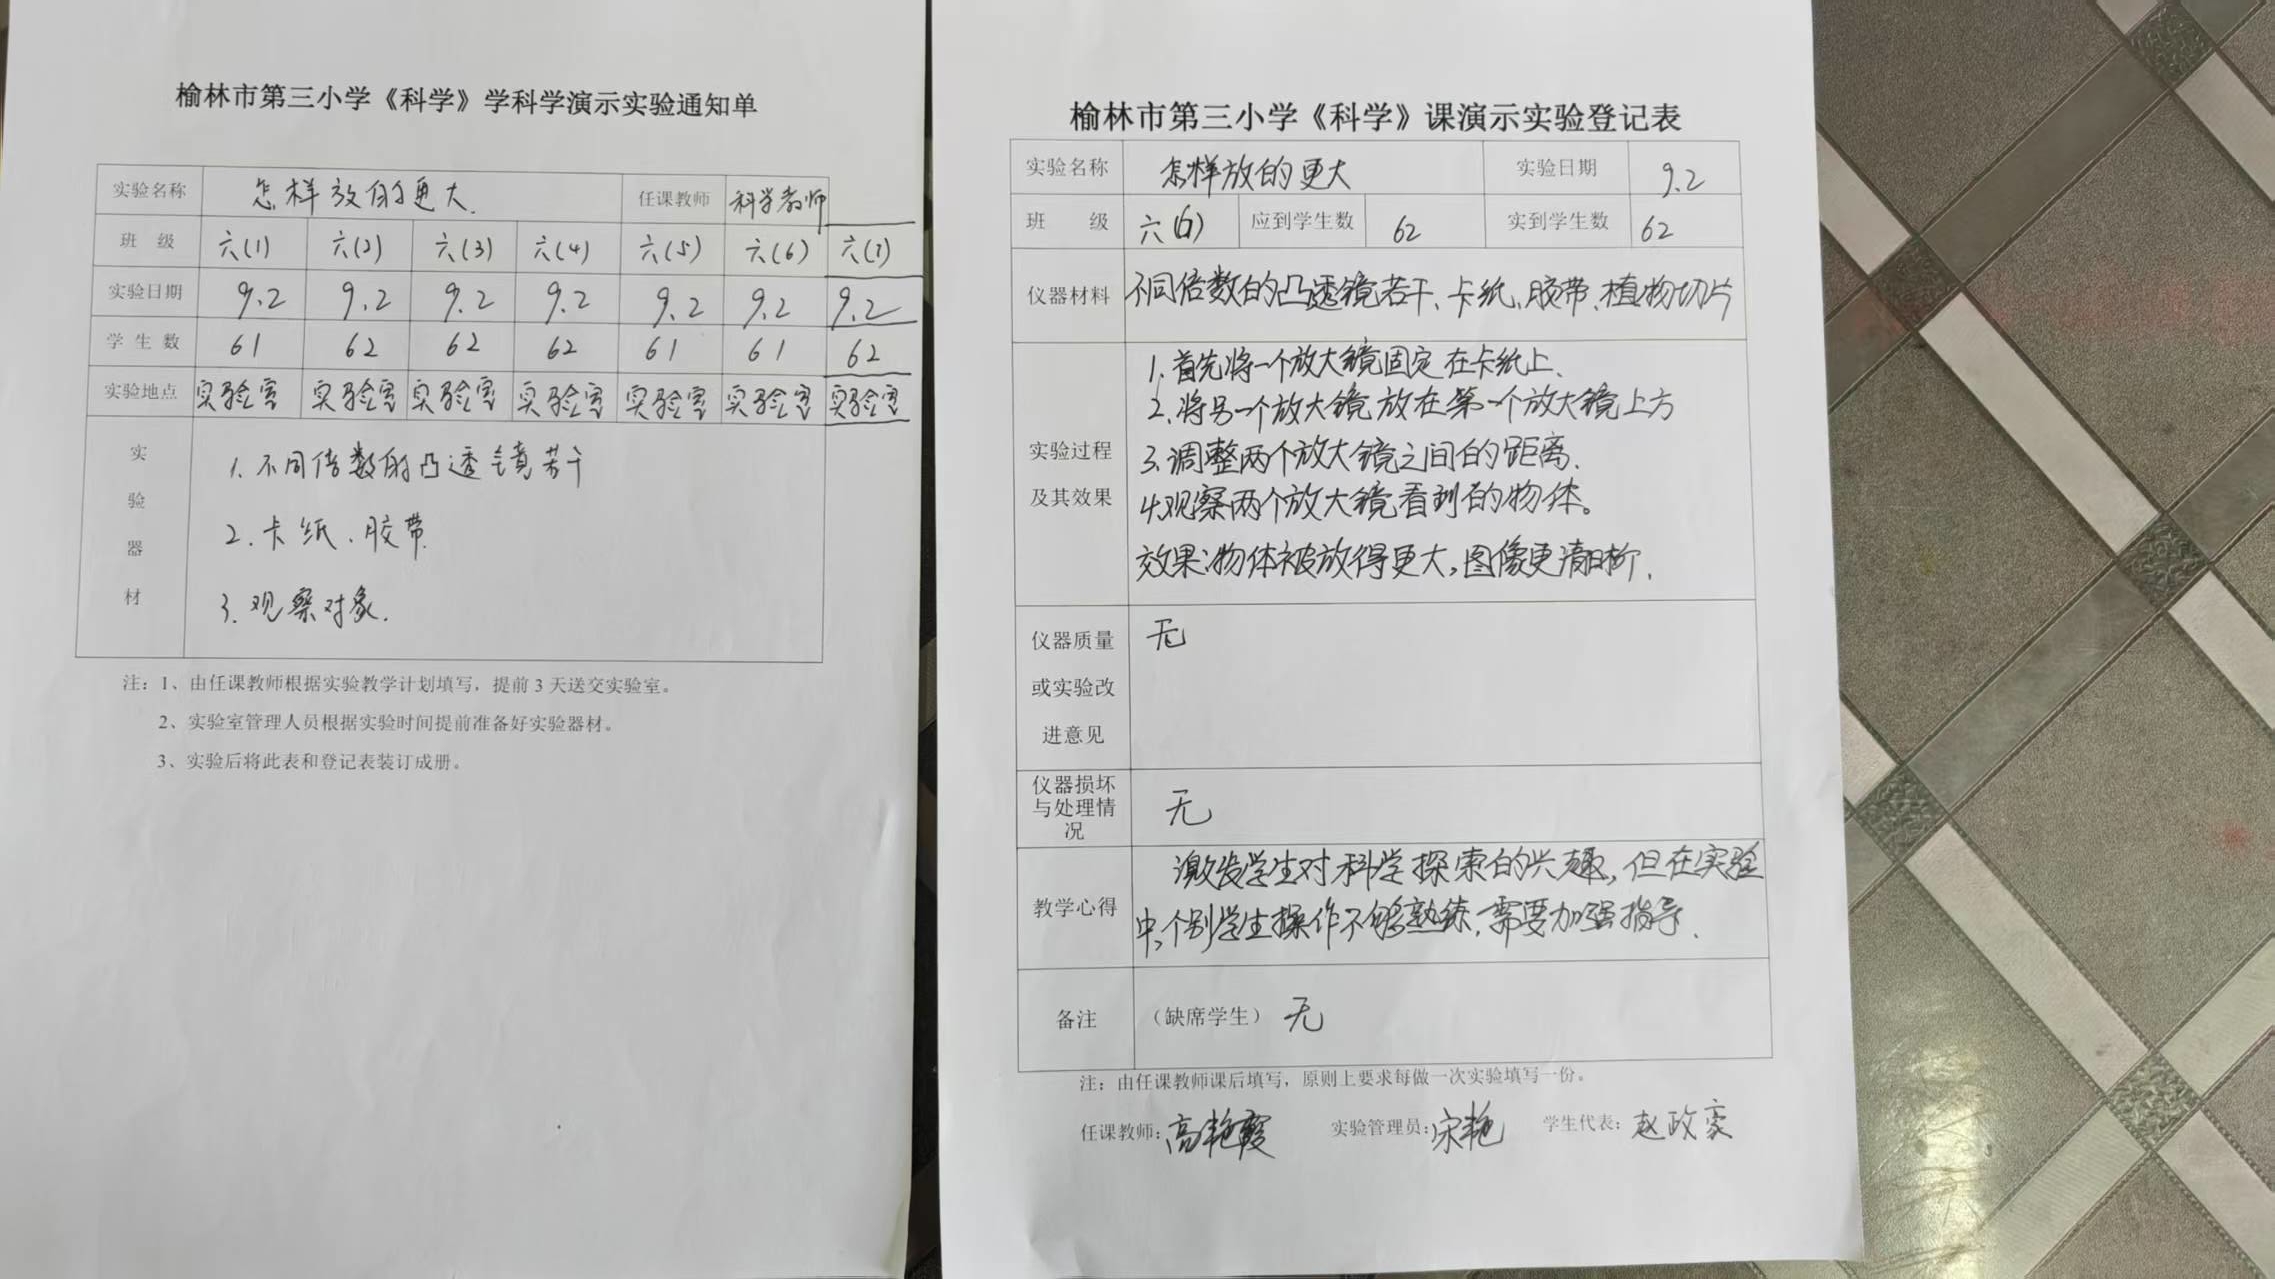 榆林市第三小学《科学》学科学演示实验通知单
实验名称 怎样放的更大. 任课教师 科学教师
班 级 六(1) 六(2) 六(3) 六(4) 六(5) 六(6) 六(7)
实验日期 9.2 9.2 9.2 9.2 9.2 9.2 9.2
学 生 数 61 62 62 62 61 61 62
实验地点 实验室 实验室 实验室 实验室 实验室 实验室 实验室
实验器材
1. 不同倍数的凸透镜若干
2. 卡纸、胶带.
3. 观察对象.
注：1、由任课教师根据实验教学计划填写，提前 3 天送交实验室。
2、实验室管理人员根据实验时间提前准备好实验器材。
3、实验后将此表和登记表装订成册。
榆林市第三小学《科学》课演示实验登记表
实验名称 怎样放的更大 实验日期 9.2
班 级 六 应到学生数 62 实到学生数 62
仪器材料 不同倍数的凸透镜若干、卡纸、胶带、植物切片
实验过程
及其效果
1. 首先将一个放大镜固定在卡纸上.
2. 将另一个放大镜放在第一个放大镜上方
3. 调整两个放大镜之间的距离.
4. 观察两个放大镜看到的物体。
效果:物体被放得更大,图像更清晰.
仪器质量 无
或实验改
进意见
仪器损坏
与处理情 无
况
教学心得
激发学生对科学探索的兴趣,但在实验
中,个别学生操作不够熟练,需要加强指导.
备注 （缺席学生） 无
注：由任课教师课后填写，原则上要求每做一次实验填写一份。
任课教师: 高艳霞 实验管理员: 宋艳 学生代表: 赵政豪